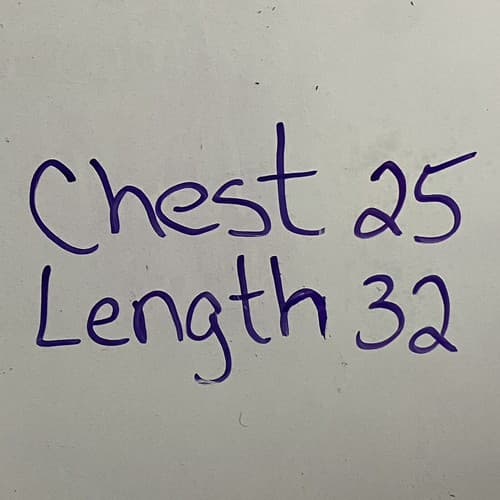 Chest 25
Length 32